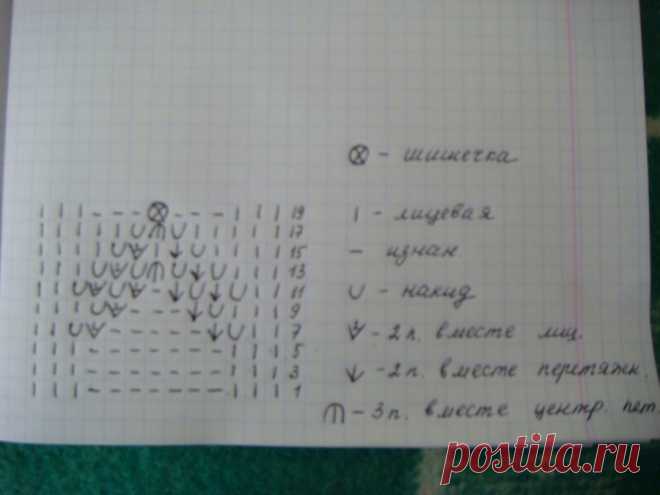 ⊗ - шишечка
| | | - - - ⊗ - - - | | | 19
17
| - лицевая
15
- - изнан
13
∪ - накид
11
9
7
- 2 п. вместе лиц.
| | | - - - - - - - | | | 5
- 2 п. вместе перетяжк.
| | | - - - - - - - | | | 3
| | | - - - - - - - | | | 1
- 3 п. вместе центр. пет.
postila.ru